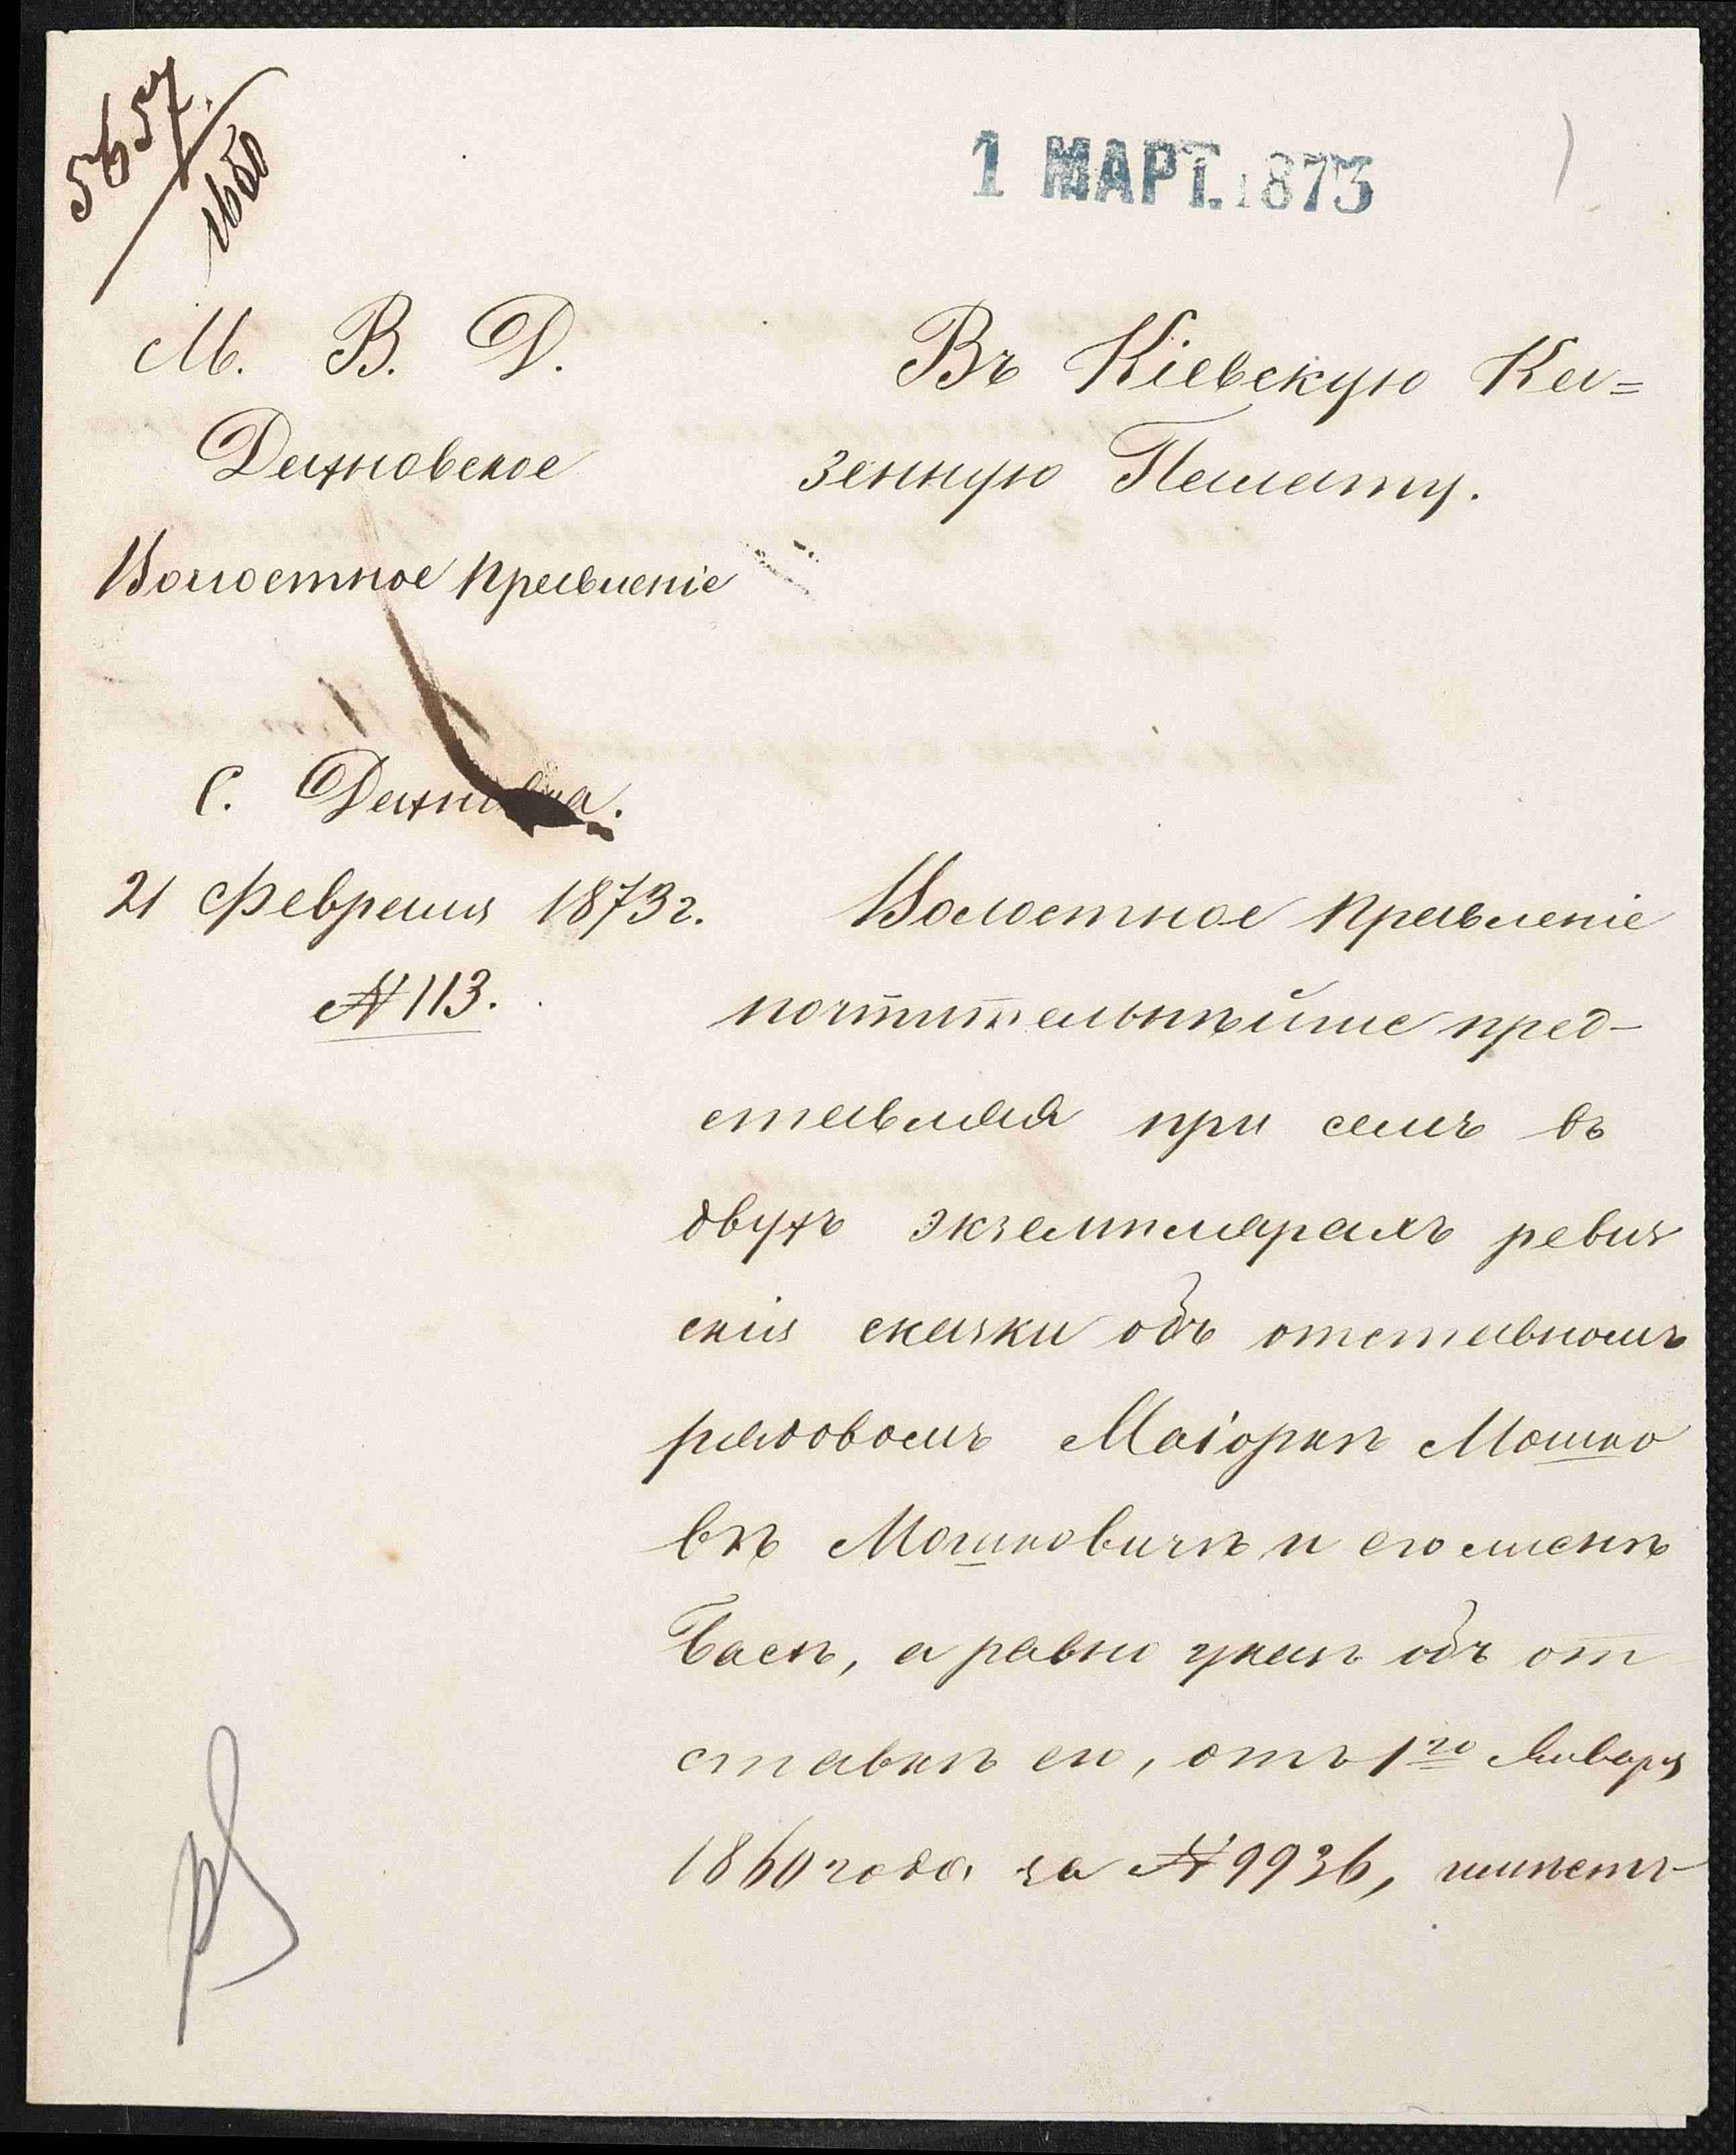 5657.
1650
1 МАРТ. 1873
М. В. Д.
Дахновское
Волостное правленіе
С. Дахновка.
21 Февраля 1873 г.
№ 113.
Въ Кіевскую Ка=
зенную Палату.
Волостное правленіе
почтительнѣйше пред-
ставляя при семъ въ
двухъ экземплярахъ ревиз
скія сказки объ отставномъ
рядовомъ Маіоркѣ Мошко
вѣ Мошковичѣ и его женѣ
Басѣ, а равно указъ объ от
ставкѣ его, отъ 1го Января
1860 года за № 9936, имѣетъ